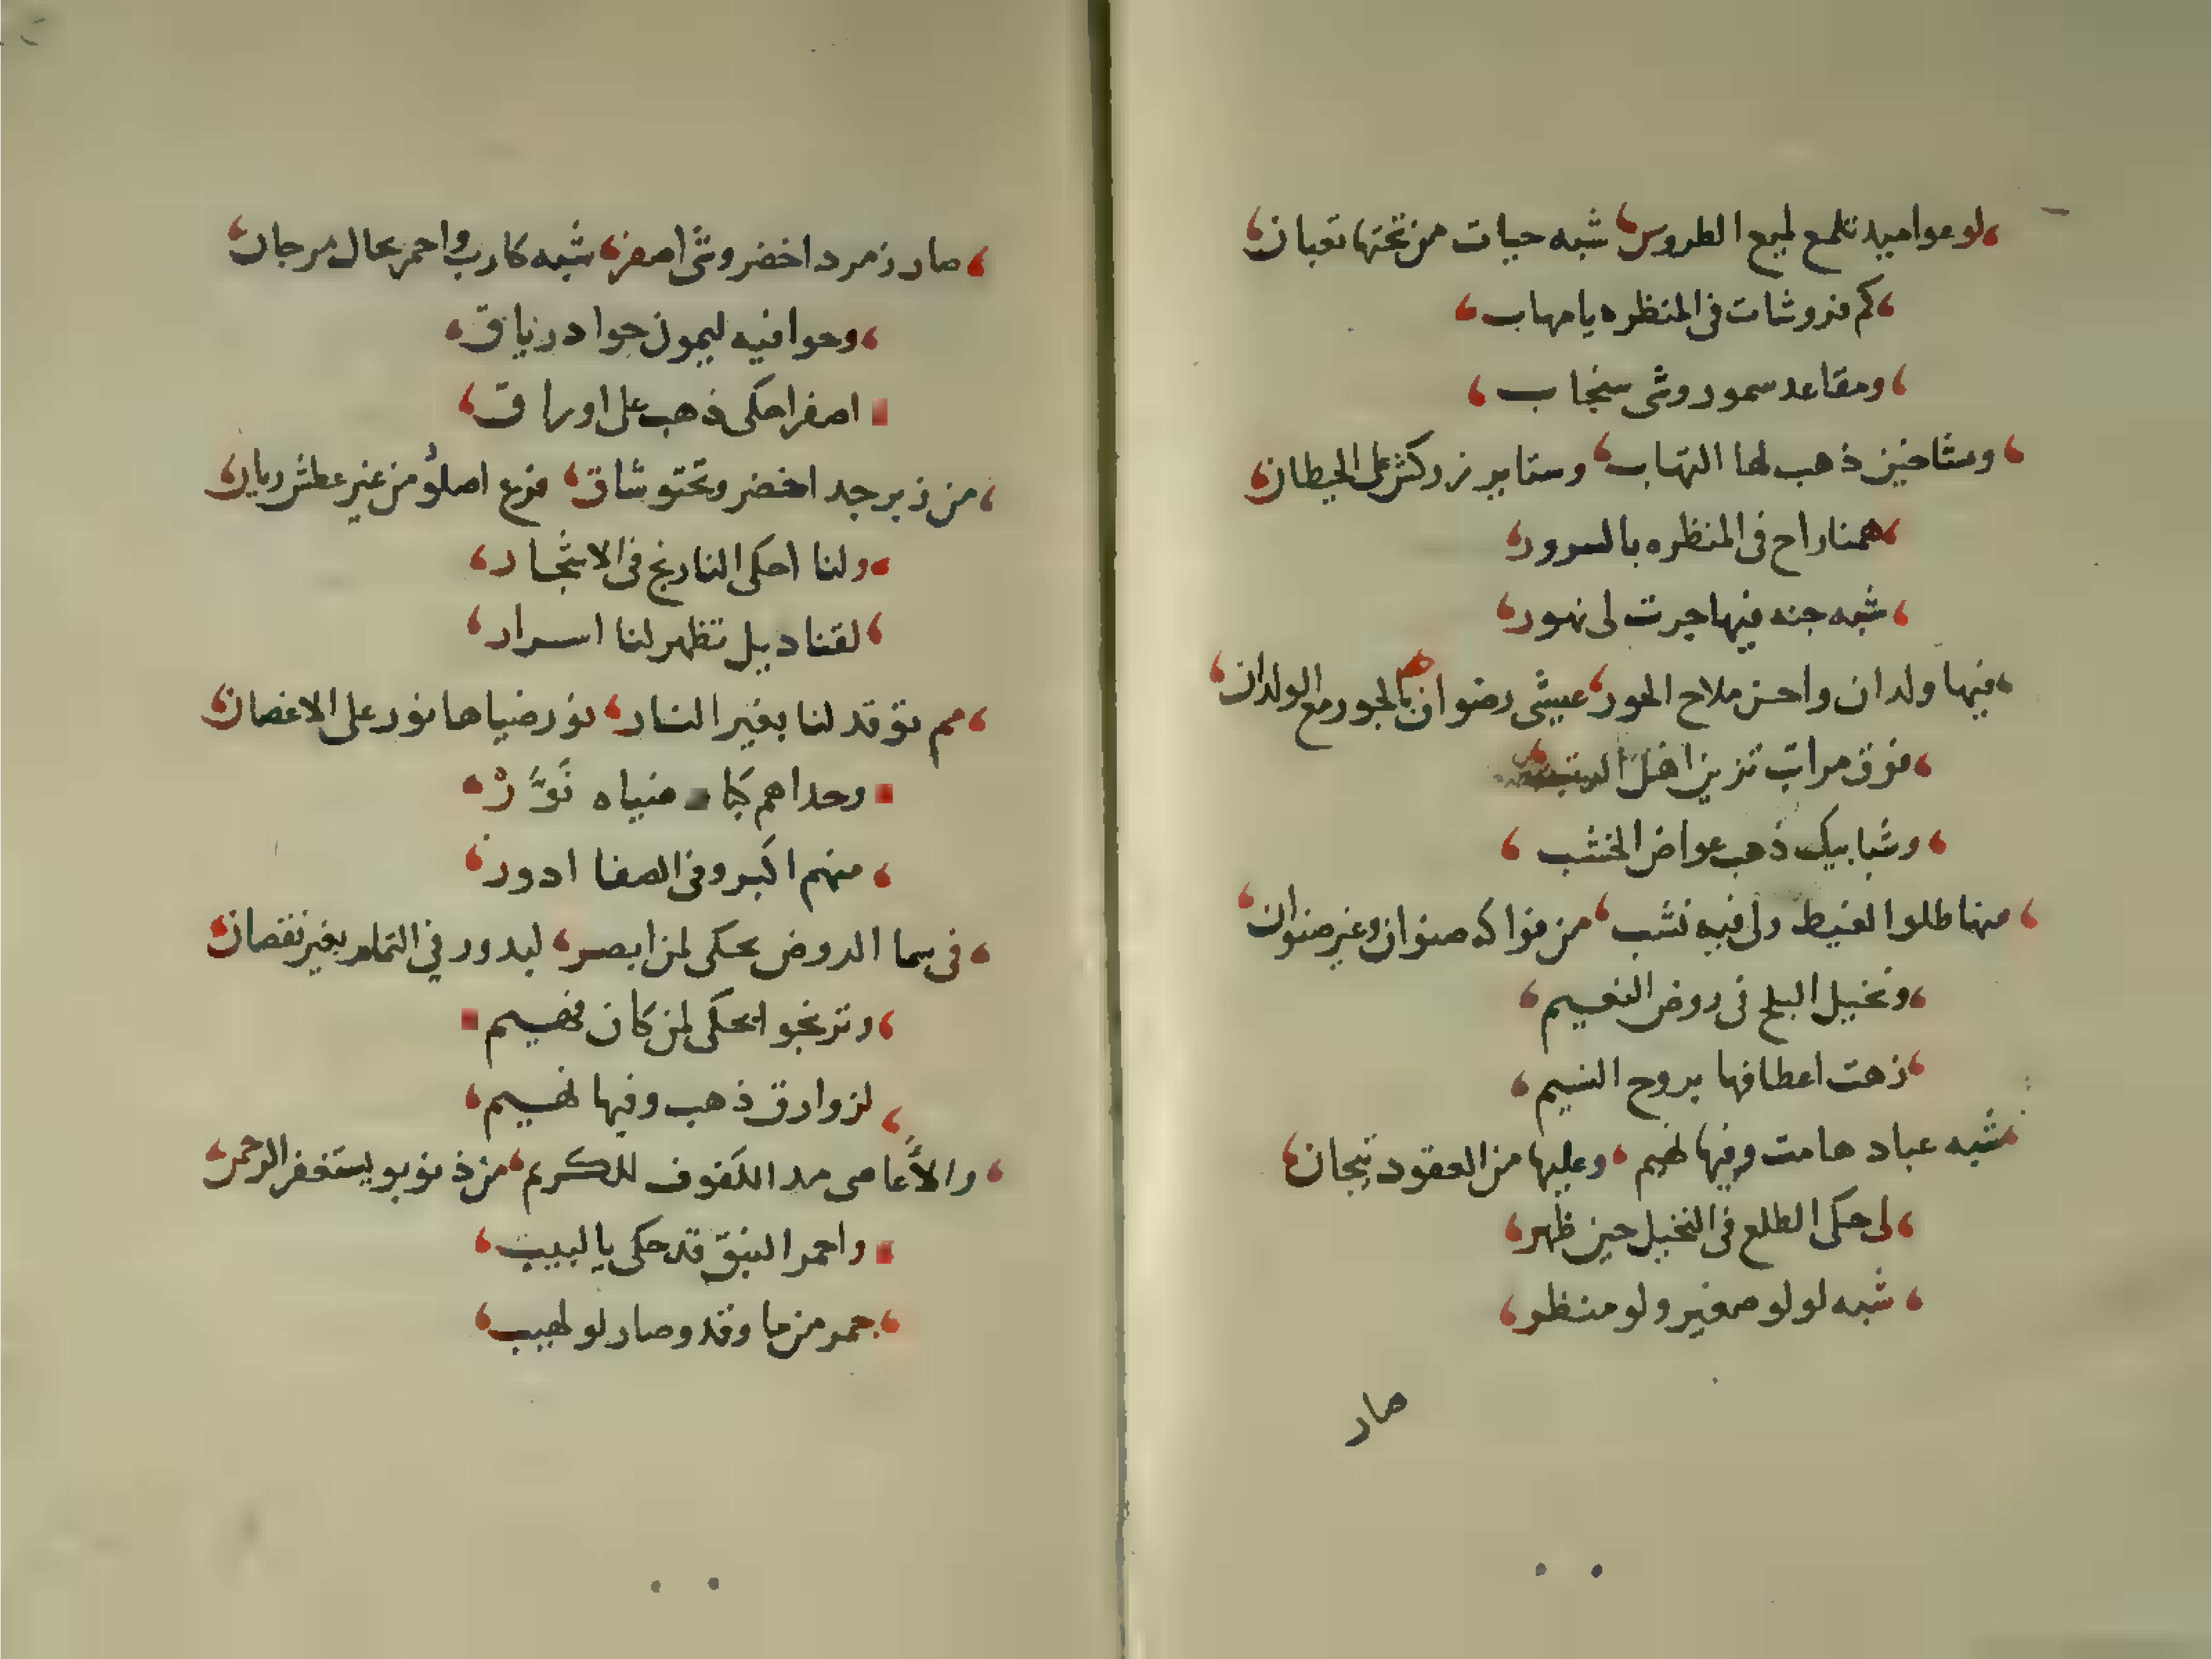 لو عواميد تلمع لميع الطروس شبه حيات من تحتها تعبان
كم فروشات فى المنظره يا مهاب
ومقاعد سمور وشى سنجاب
وعشاخين ذهب لها التهاب وستاير زركش على الحيطان
همنا راح فى المنظره بالسرور
شبه جنه فيها جرت لى نهور
فيها ولدان واحسن ملاح الحور عيشى رضوان بالحور مع الولدان
فوق مراتب تزين اهل
وشبابيك ذهب عواض الخشب
منها طلوا الغيط ولى فيه نشب من فواكه صنوان وغير صنوان
ونخيل البلح فى روض النعيم
زهت اعطافها بروح النسيم
شبه عباد هامت وفيها لهيم وعليها من العقود تيجان
لى حكى الطلع فى النخيل حين ظهر
شبه لولو صغير ولو منظر
صار
صار زمرد اخضر وشى اصفر شبه كارب واحمر بحال مرجان
وحوا فيه ليمون حوا درياق
اصفر احكى ذهب على اوراق
من زبرجد اخضر وتحتو شاق فرع اصلو من غير عطش ريان
ولنا احكى النارنج فى الاشجار
لقناديل تظهر لنا اسرار
مم توقد لنا بغير النار نور ضياها نور على الاغصان
وحداهم كباد ضياه نَوَّرْ
منهم اكبر وفى الصفا ادور
فى سما الروض يحكى لمن ابصر لبدور فى التمام بغير نقصان
وترنجو ايحكى لمن كان فهيم
لزوارق ذهب وفيها لهيم
والأعاصى مد الكفوف للكريم من ذنوبو يستغفر الرحمن
واحمر النبق قد حكى يا لبيب
جمر من ما وقد وصار لو لهيب